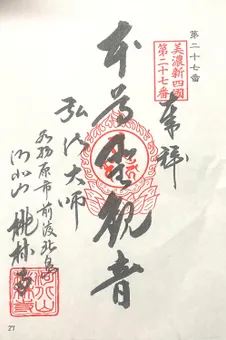 第二十七番
美濃新四國
第二十七番
奉拝
本尊聖観音
弘法大師
各務原市前渡北島
河北山 桃林寺
27